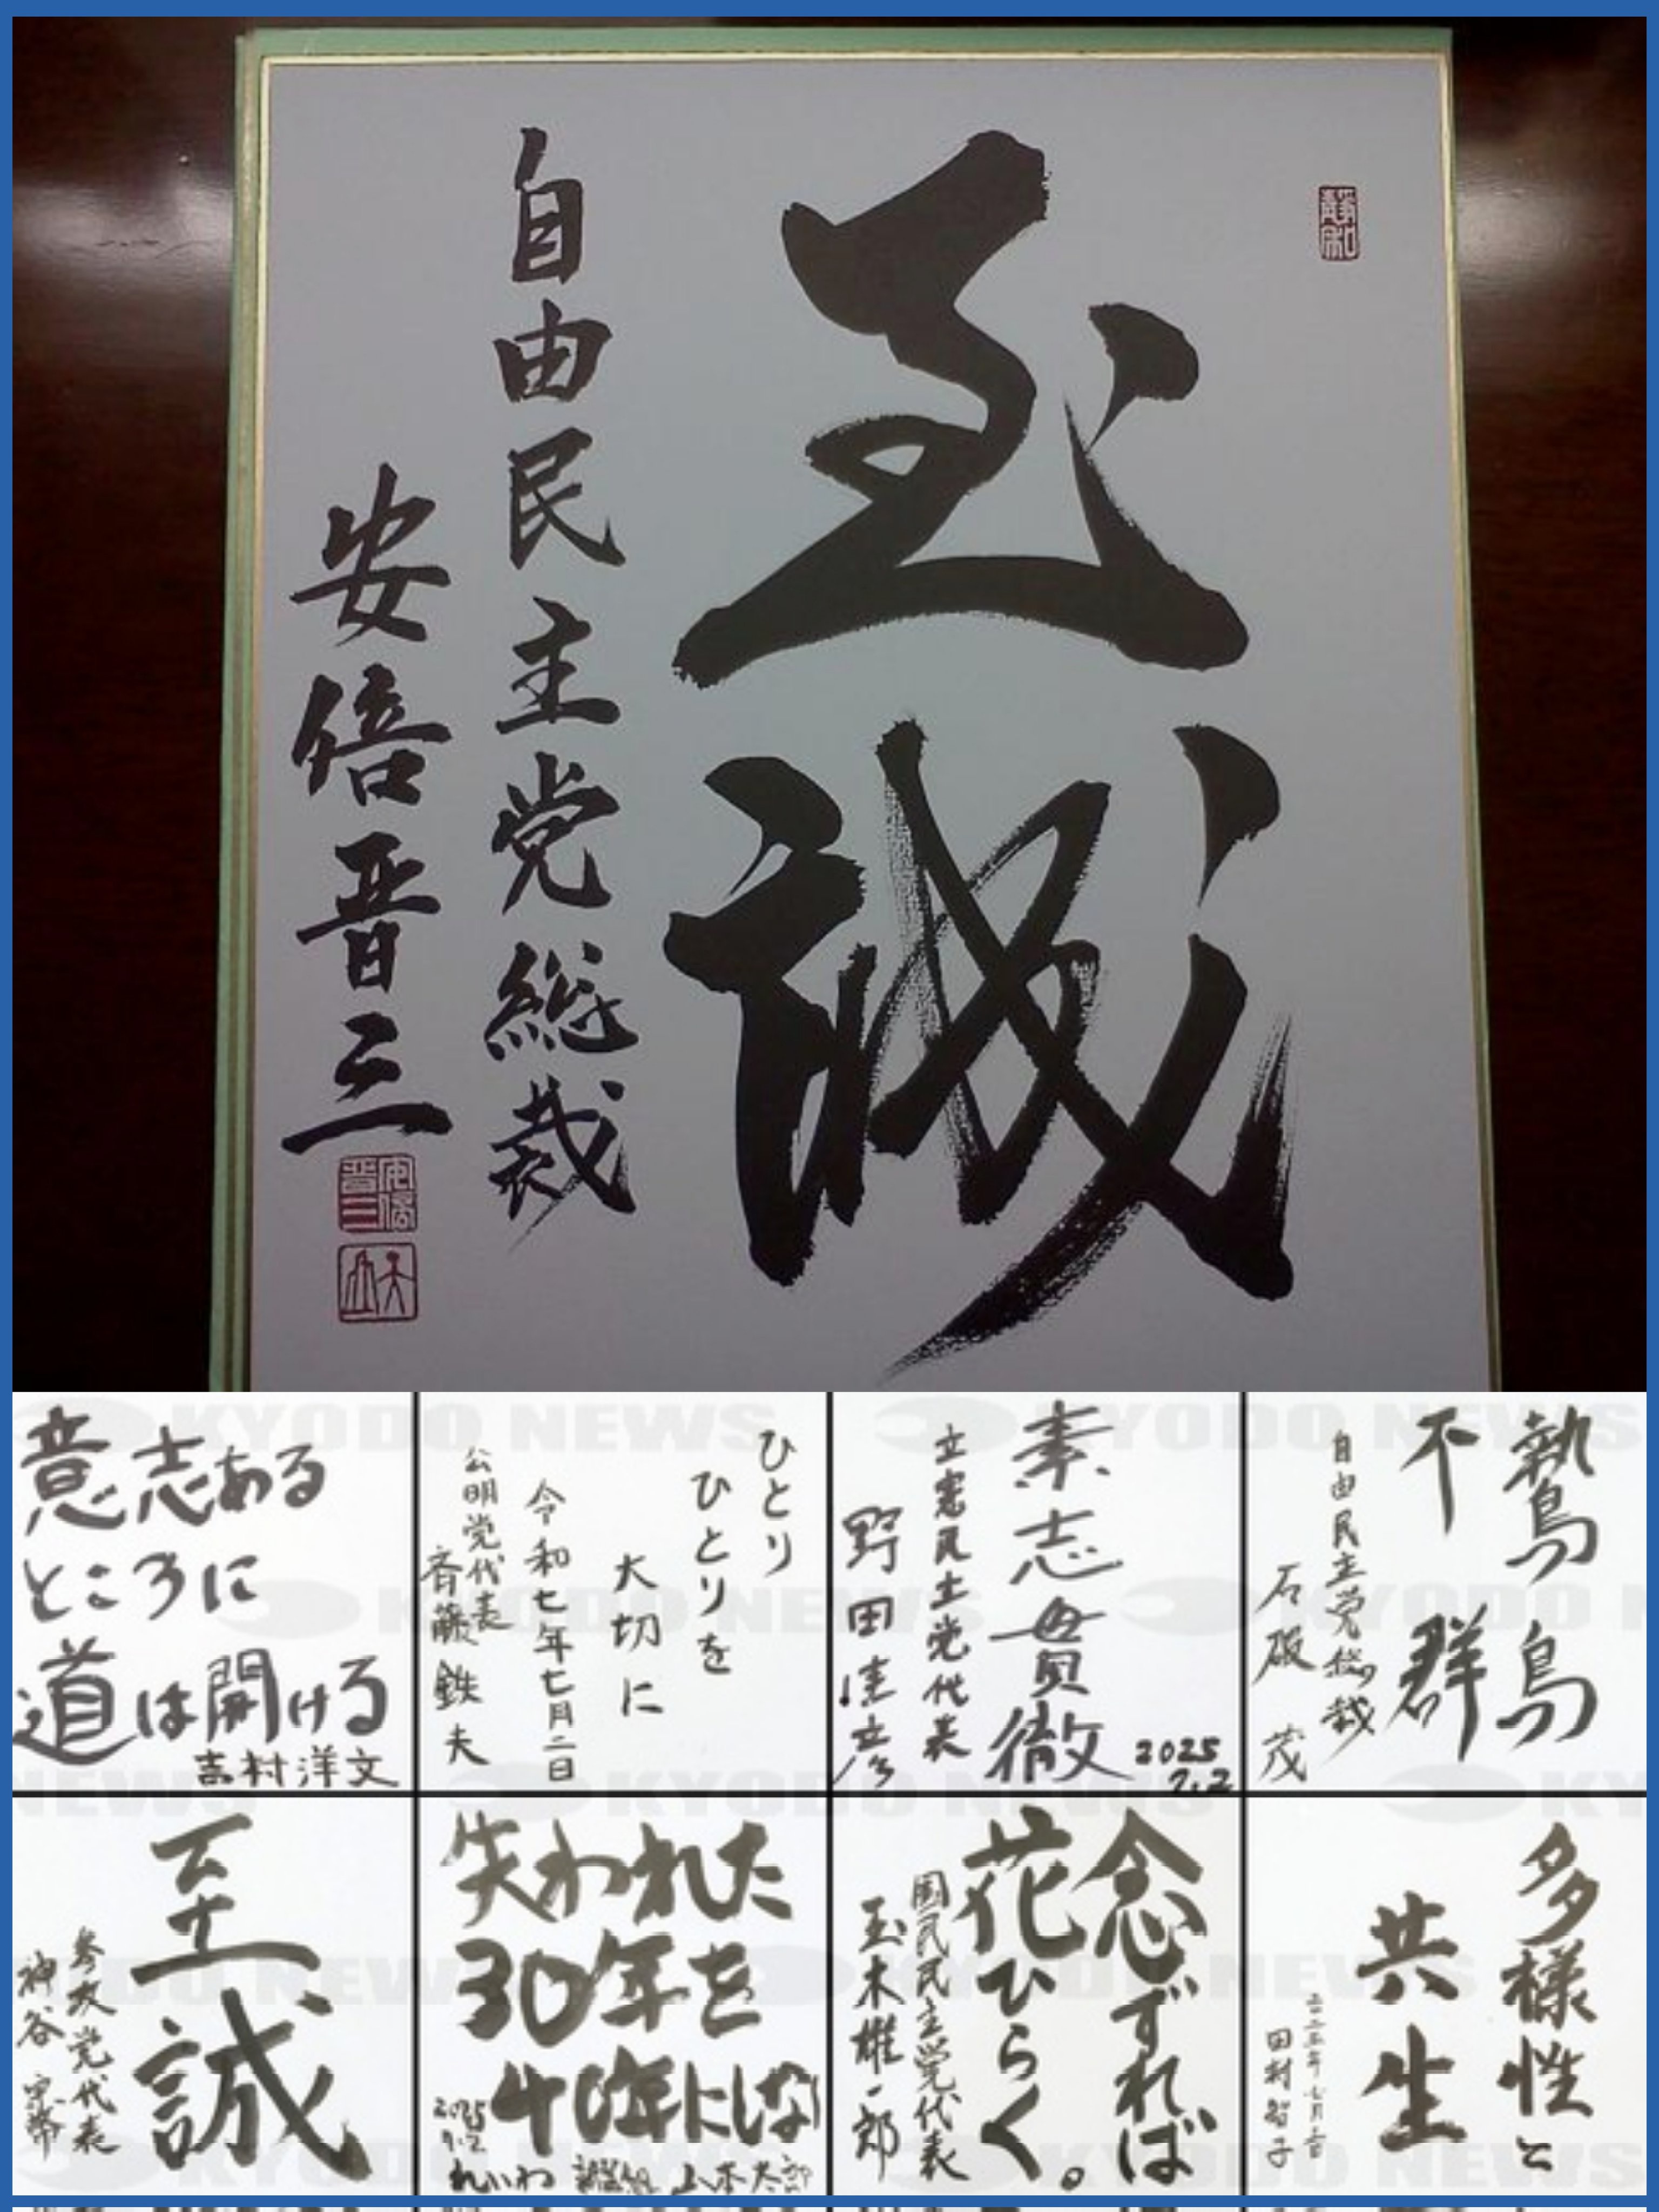 靜和
至誠
自由民主党総裁
安倍晋三
安倍晋三
鷙鳥
不群
自由民主党総裁
石破 茂
素志貫徹
立憲民主党代表
野田佳彦
2025
7.2
ひとり
ひとりを
大切に
令和七年七月二日
公明党代表
斉藤鉄夫
意志ある
ところに
道は開ける
吉村洋文
多様性と
共生
二〇二五年七月二日
田村智子
念ずれば
花ひらく。
国民民主党代表
玉木雄一郎
失われた
30年を
40年にしない
2025
7.2
れいわ 新選組 山本太郎
至誠
参政党代表
神谷宗幣
KYODO NEWS